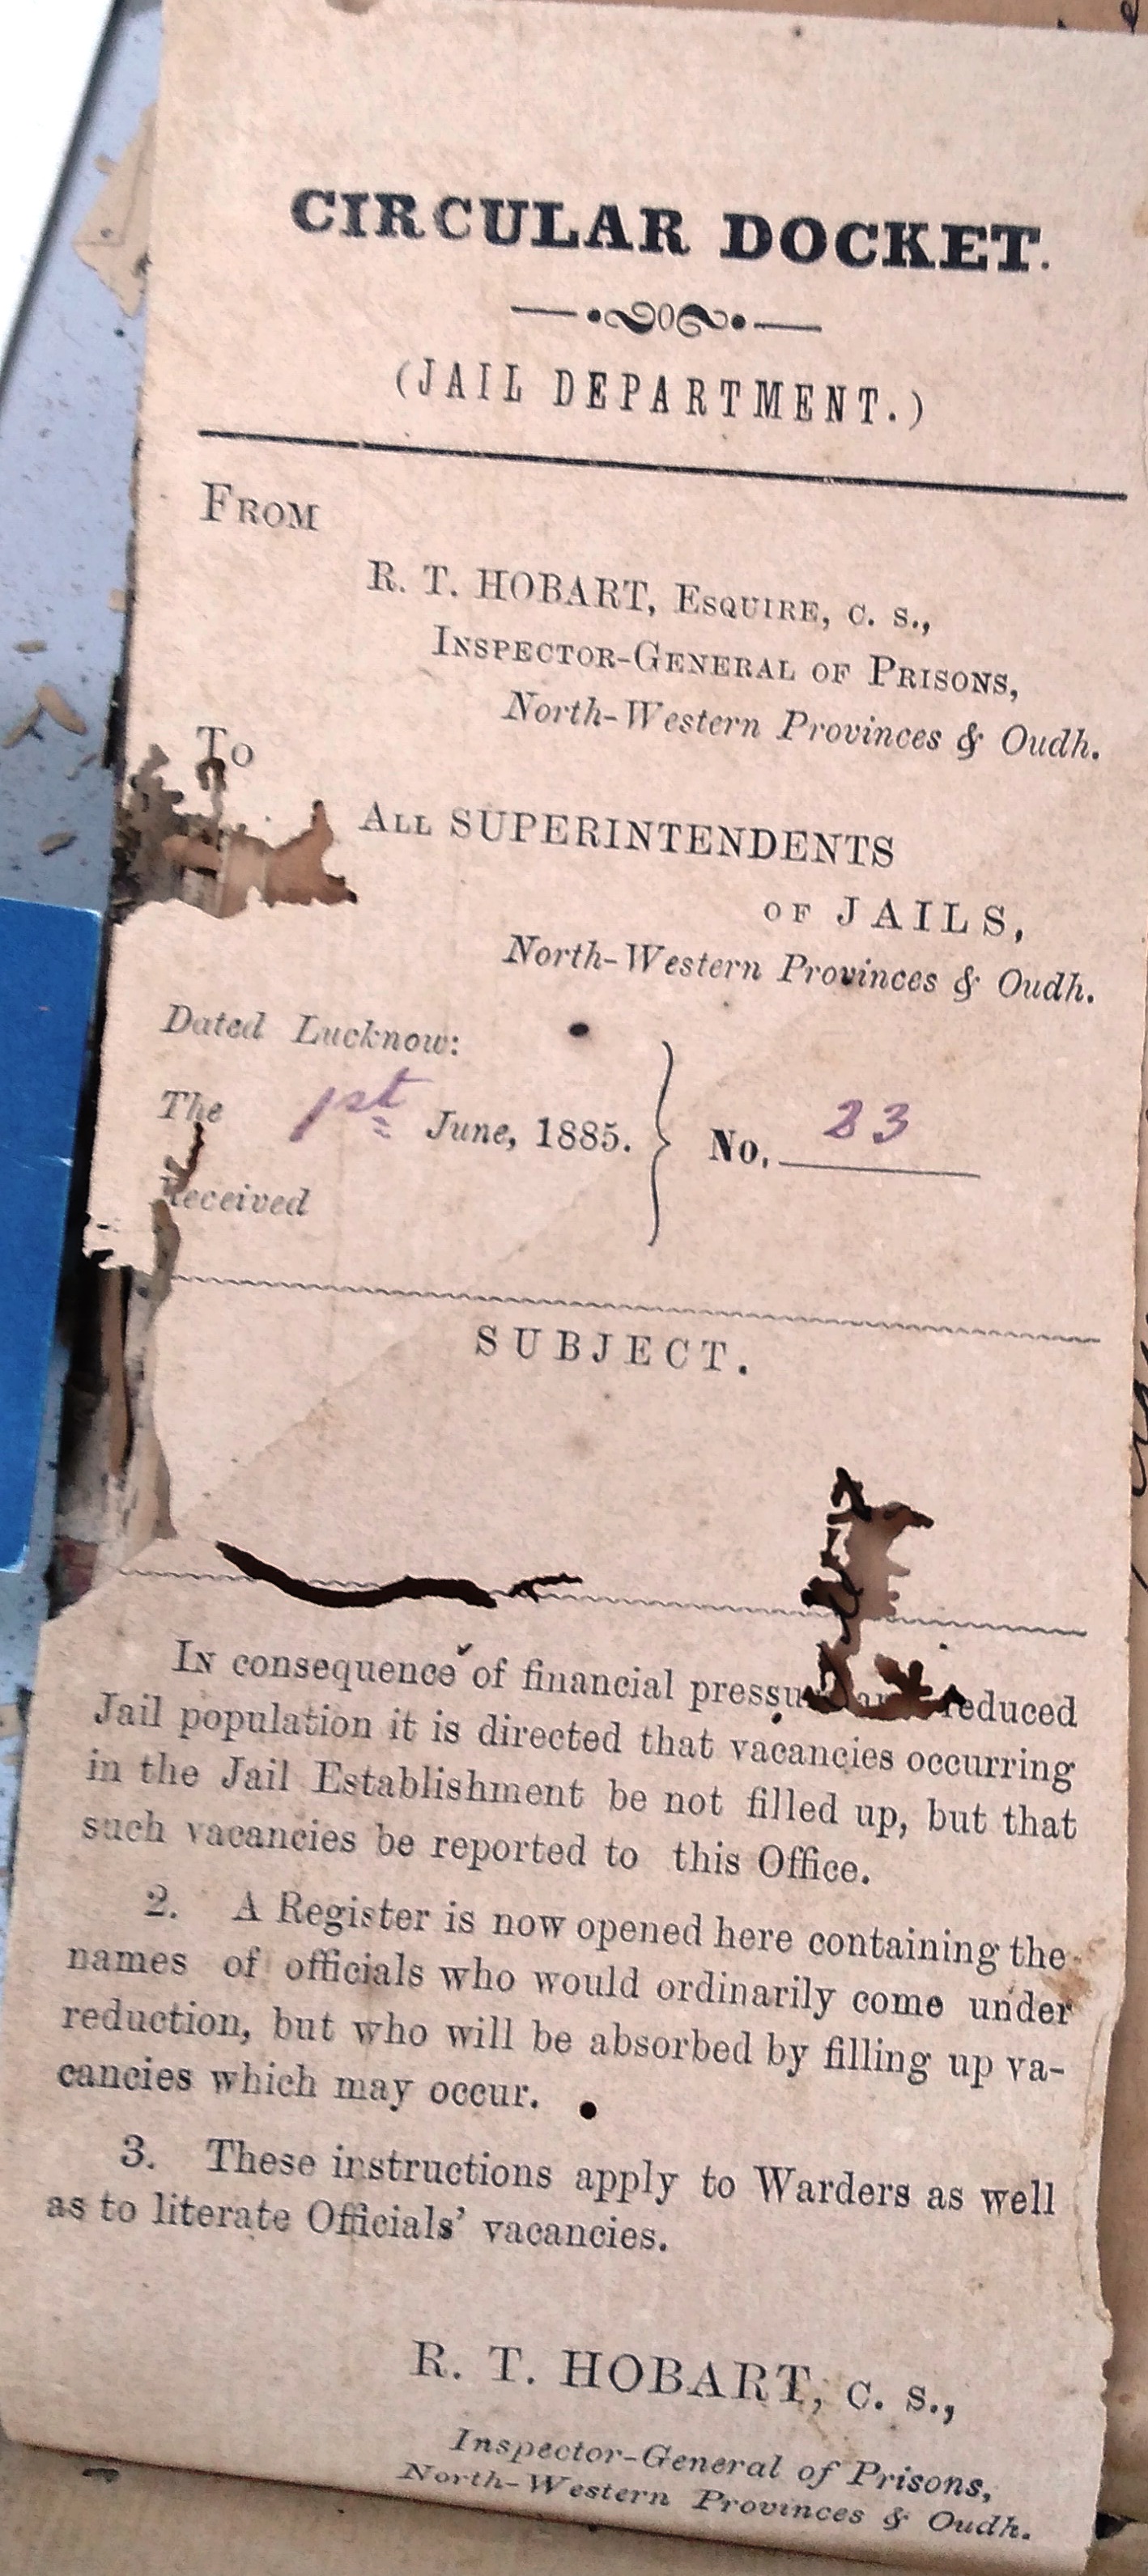 CIRCULAR DOCKET.
(JAIL DEPARTMENT.)
FROM
R. T. HOBART, ESQUIRE, C. S.,
INSPECTOR-GENERAL OF PRISONS,
North-Western Provinces & Oudh.
To
ALL SUPERINTENDENTS
OF JAILS,
North-Western Provinces & Oudh.
Dated Lucknow:
The 1st June, 1885. No. 23
Received
SUBJECT.
IN consequence of financial reduced
Jail population it is directed that vacancies occurring
in the Jail Establishment be not filled up, but that
such vacancies be reported to this Office.
2. A Register is now opened here containing the
names of officials who would ordinarily come under
reduction, but who will be absorbed by filling up va-
cancies which may occur.
3. These instructions apply to Warders as well
as to literate Officials' vacancies.
R. T. HOBART, C. S.,
Inspector-General of Prisons,
North-Western Provinces & Oudh.